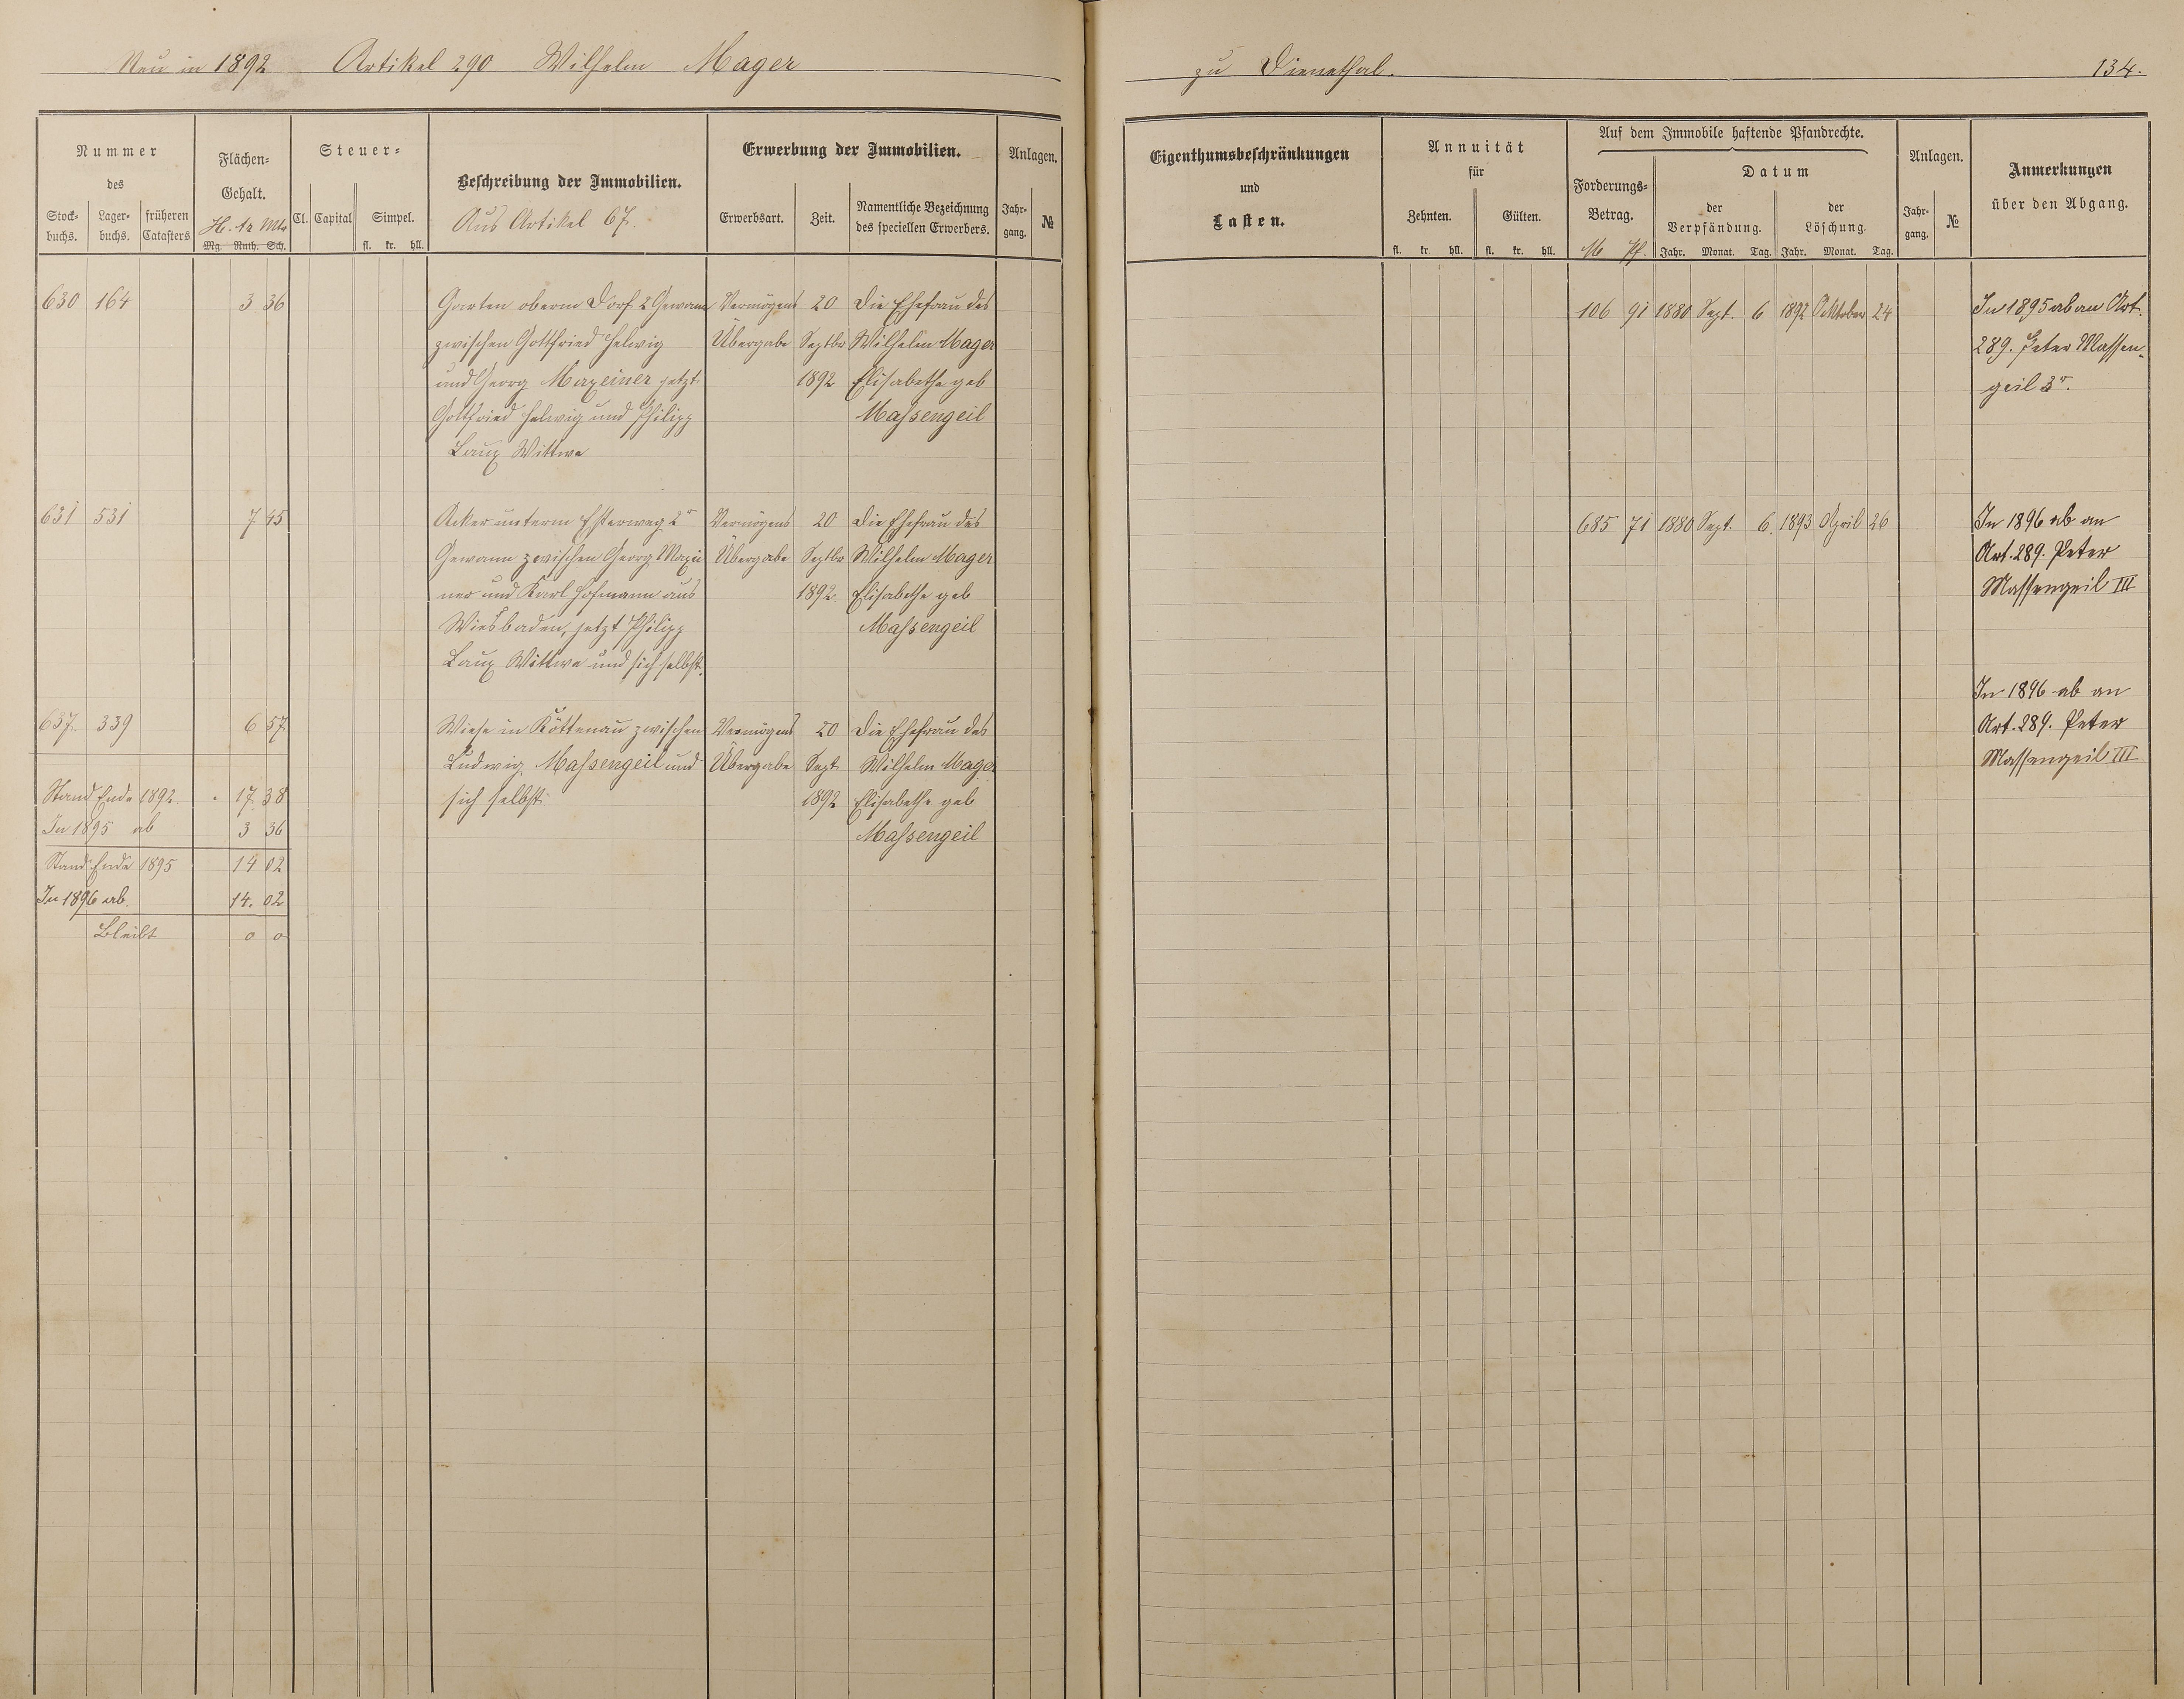 Neu in 1892 Artikel 290 Wilhelm Mager
zu Dienethal. 134.
Nummer
des
Stock-
buchs.
Lager-
buchs.
früheren
Catasters
Flächen-
Gehalt.
H. Ar Mtr
Mg. Ruth. Sch.
Steuer-
Cl. Capital Simpel.
fl. kr. hll.
Beschreibung der Immobilien.
Aus Artikel 67.
Erwerbung der Immobilien.
Erwerbsart. Zeit.
Namentliche Bezeichnung
des speciellen Erwerbers.
Anlagen.
Jahr-
gang.
№
Eigenthumsbeschränkungen
und
Lasten.
Annuität
für
Zehnten. Gülten.
fl. kr. hll. fl. kr. hll.
Auf dem Immobile haftende Pfandrechte.
Forderungs-
Betrag.
M Pf.
Datum
der
Verpfändung.
Jahr. Monat. Tag.
der
Löschung.
Jahr. Monat. Tag.
Anlagen.
Jahr-
gang.
№
Anmerkungen
über den Abgang.
630 164 3 36 Garten oberm Dorf 2 Gewann Vermögens 20 Die Ehefrau des 106 91 1880 Sept. 6 1892 Oktober 24 In 1895 ab an Art.
zwischen Gottfried Helwig Übergabe Septbr Wilhelm Mager 289. Peter Massen-
und Georg Maxeiner jetzt 1892 Elisabethe geb geil 3r.
Gottfried Helwig und Philipp Massengeil
Laux Wittwe
631 531 7 45 Acker unterm Esterweg 2r Vermögens 20 Die Ehefrau des 685 71 1880 Sept. 6. 1893 April 26 In 1896 ab an
Gewann zwischen Georg Maxei Übergabe Septbr Wilhelm Mager Art. 289. Peter
ner und Karl Hofmann aus 1892. Elisabethe geb Massengeil III
Wiesbaden, jetzt Philipp Massengeil
Laux Wittwe und sich selbst.
In 1896 ab an
637. 339 6 57 Wiese in Köttenau zwischen Vermögens 20 Die Ehefrau des Art. 289. Peter
Ludwig Massengeil und Übergabe Sept Wilhelm Mager Massengeil III
Stand Ende 1892. 17. 38 sich selbst 1892 Elisabethe geb
In 1895 ab 3 36 Massengeil
Stand Ende 1895 14 02
In 1896 ab. 14. 02
Bleibt 0 0